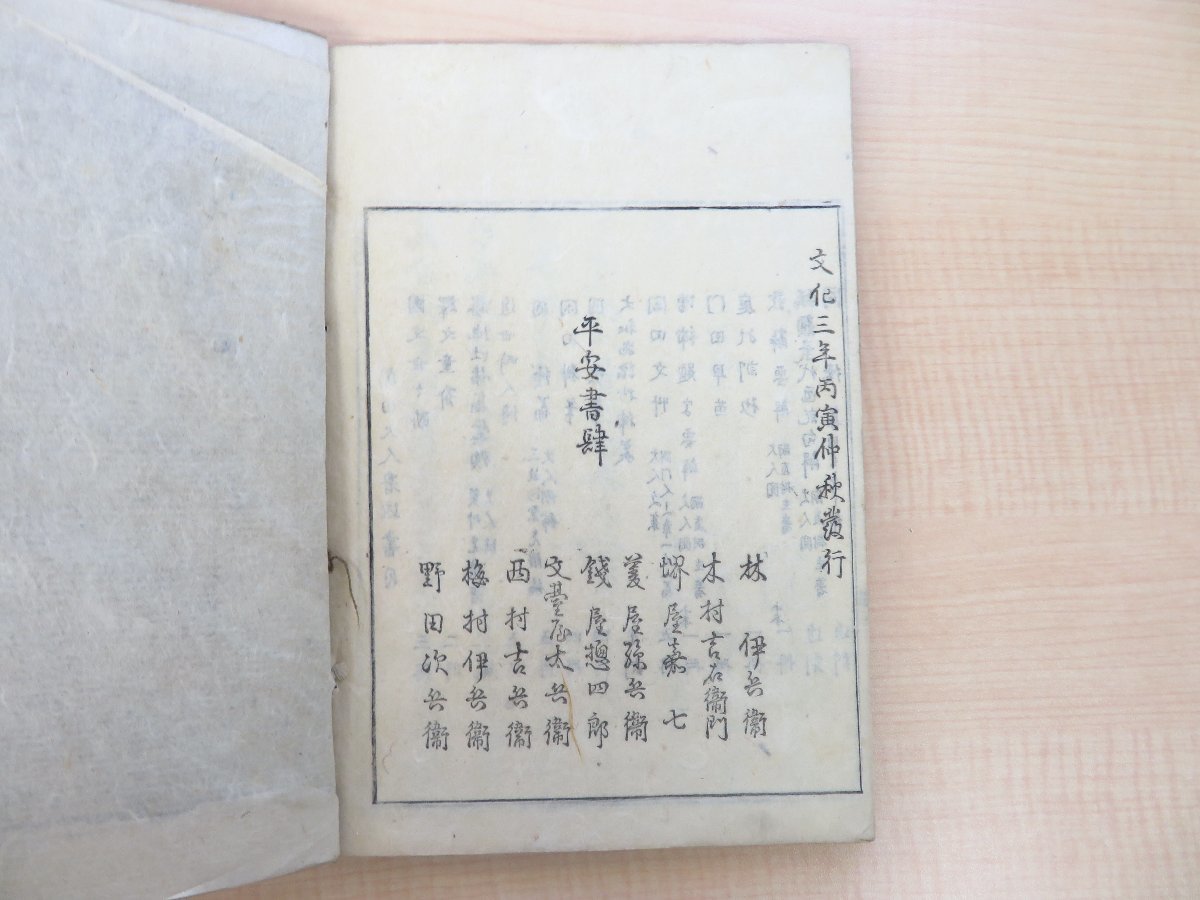 文化三年丙寅仲秋發行
平安書肆
林伊兵衞
木村吉右衞門
堺屋嘉七
菱屋孫兵衞
錢屋惣四郎
文臺屋太兵衞
西村吉兵衞
梅村伊兵衞
野田次兵衞